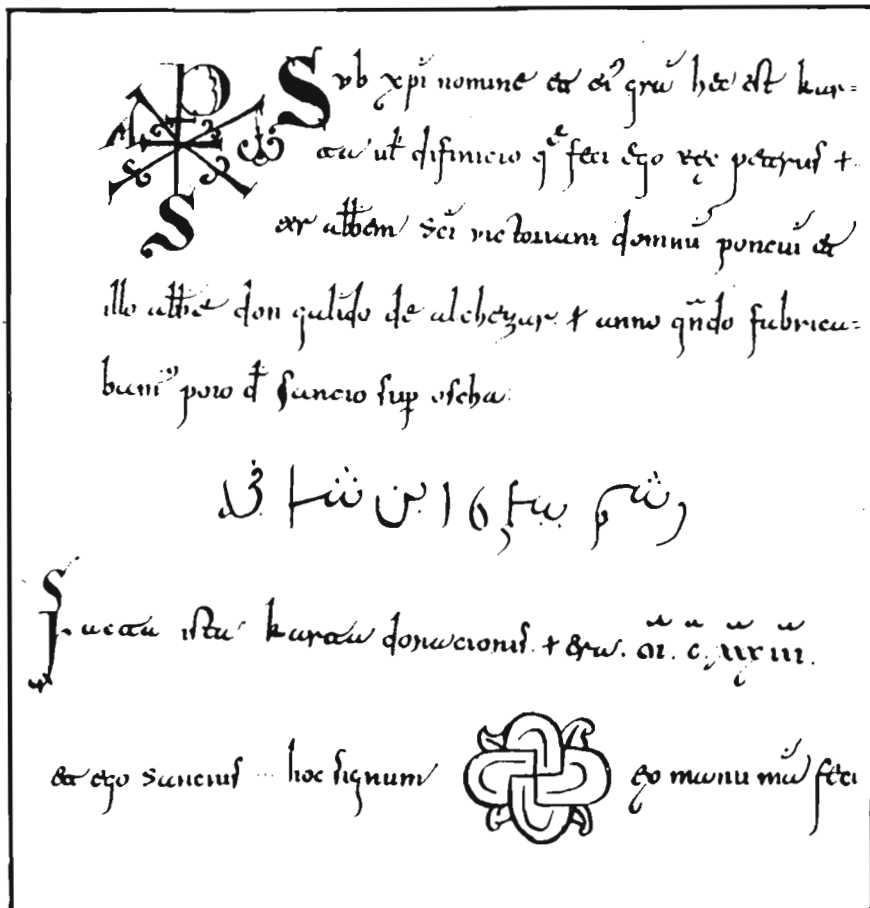 Sub xpi nomine et ei' gra hec est kar=
ta ul difinicio qe feci ego rex petrus +
ex abbem sci victoriani domnu ponciu et
illo abbe don galido de alchezar + anno qndo fabrica=
bam' poio d sancio sup oscha
رشم بيطرو ابن شانجه
Facta ista karta donacionis + era. c.
et ego sancius hoc signum manu ma feci